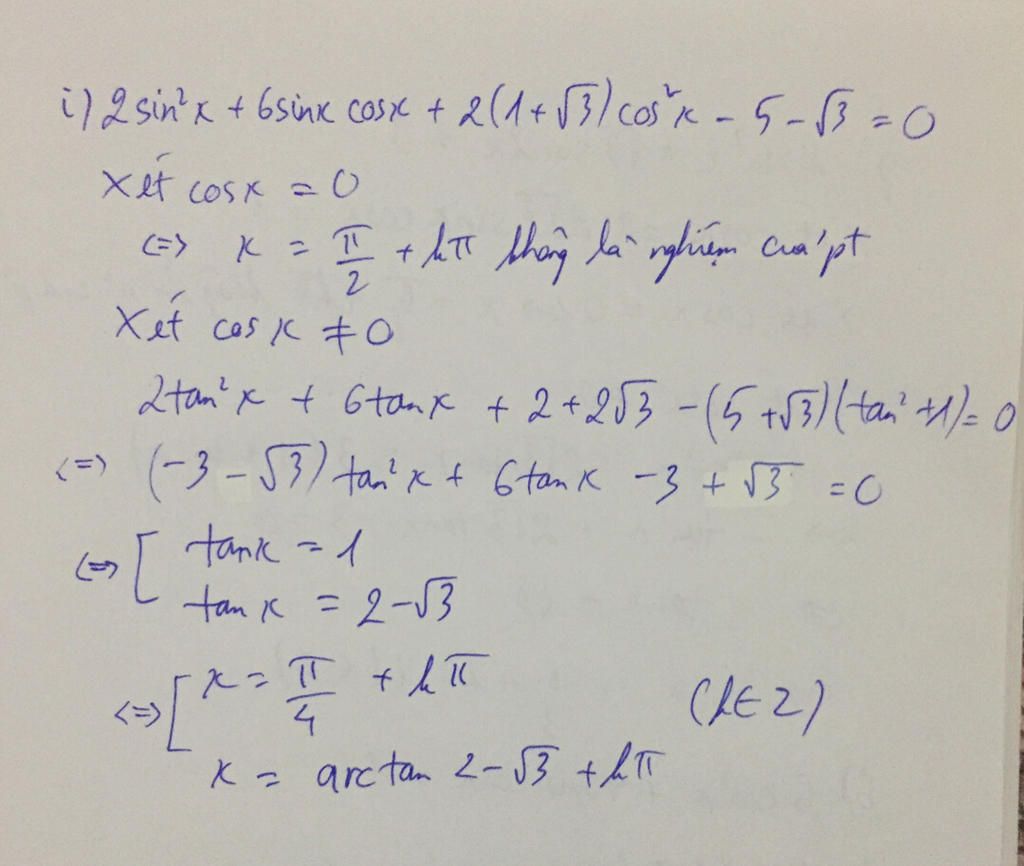 i) 2 sin²x + 6sinx cosx + 2(1+√3) cos²x - 5 - √3 = 0
Xét cosx = 0
<=> x = π/2 + kπ không là nghiệm của pt
Xét cos x ≠ 0
2tan²x + 6tanx + 2 + 2√3 - (5 + √3)(tan² + 1) = 0
<=> (-3 - √3) tan²x + 6tanx - 3 + √3 = 0
<=> [ tanx = 1
tan x = 2 - √3
<=> [ x = π/4 + kπ (k ∈ Z)
x = arctan 2 - √3 + kπ